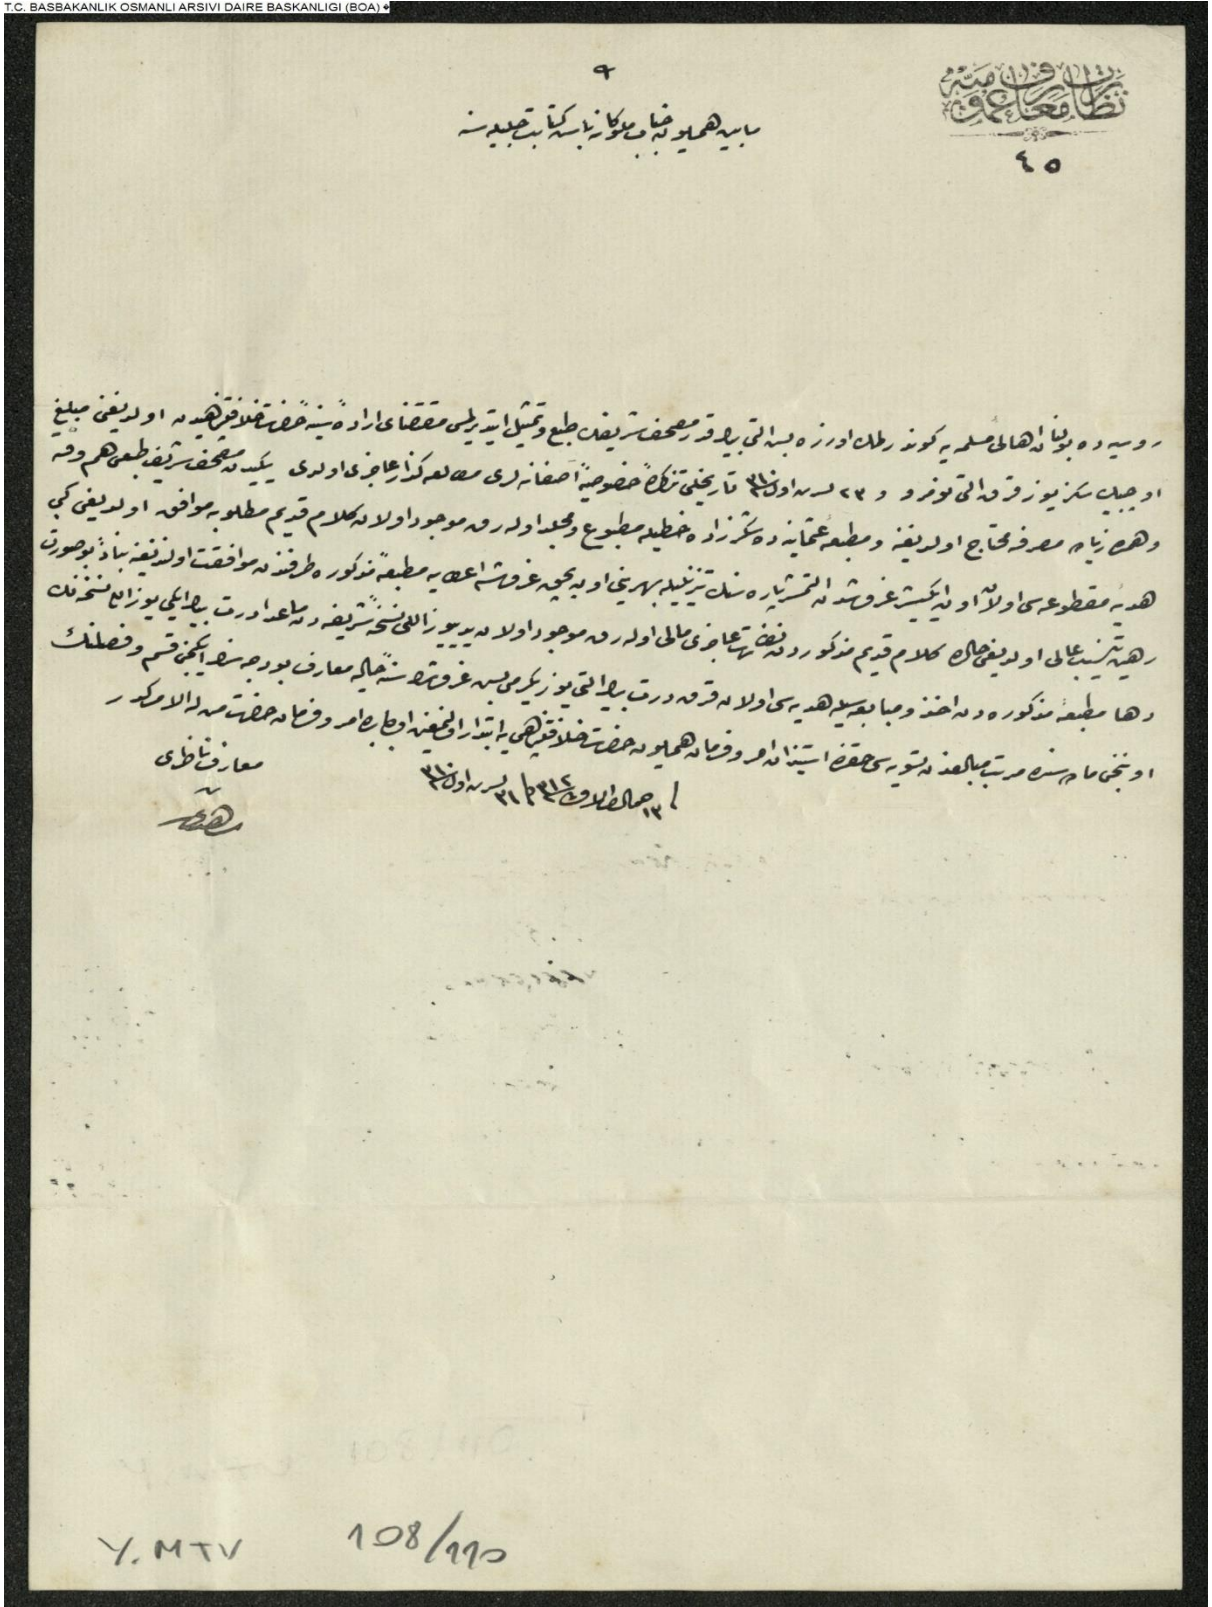 T.C. BASBAKANLIK OSMANLI ARSIVI DAIRE BASKANLIGI (BOA)
نظارت معارف عمومیه
٤٥
مابین همایون جناب ملوکانه باش کتابت جلیله سنه
روسیه ده بولنان اهالی مسلمه یه کوندرلمك اوزره بش التی بیك قدر مصحف شریفك طبع و تمثیل ایتدیرلمسی مقتضای اراده سنیه حضرت خلافتپناهیدن اولدیغنی مبلغ
اوچ بیك سکز یوز قرق التی نومرو و ٢٣ تشرین اول سنه ٣١٠ تاریخلی تذکره خصوصیه آصفانه لری مطالعه کذار عاجزی اولدی یکیدن مصحف شریف طبعی هم وقته
و هم زیاده مصرفه محتاج اولدیغنه و مطبعه عثمانیه ده شکرزاده خطیله مطبوع و مجلد اوله رق موجود اولان کلام قدیم مطلوبه موافق اولدیغی کبی
هدیه مقطوعه سی اولان اون ایکیشر غروشدن التمشر پاره سنك تنزیلیله بهرینی اون بچق غروشه اعطایه مطبعه مذکوره طرفندن موافقت اولندیغنه بناء بوصورت
رهین تنسیب عالی اولدیغی حالده کلام قدیم مذکوردن نظارت عاجزی مالی اوله رق موجود اولان یدییوز اللی نسخه شریفه دن ماعدا درت بیك ایکی یوز اللی نسخه نك
دها مطبعه مذکوره دن اخذ و مبایعه سیله هدیه سی اولان قرق درت بیك التی یوز یکرمی بش غروشك سنه حالیه معارف بودجه سنك ایکنجی قسم و فصلنك
اوننجی ماده سنده مرتب مبالغدن تسویه سی حقنده استیذان امر و فرمان همایون حضرت خلافتپناهی یه ابتدار اولنمغین اولبابده امر و فرمان حضرت من له الامرکدر
فی ١٣ جمادی الاولی سنه ٣١٢ و فی ٣١ تشرین اول سنه ٣١٠
معارف ناظری
زهدی
Y. MTV 108/110